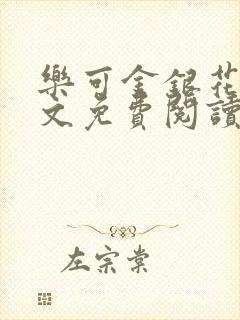 樂可金銀花
文免費閱讀
左宗棠